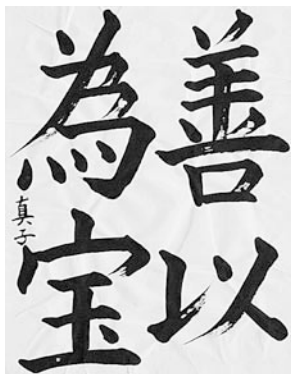 善以
為宝
真子